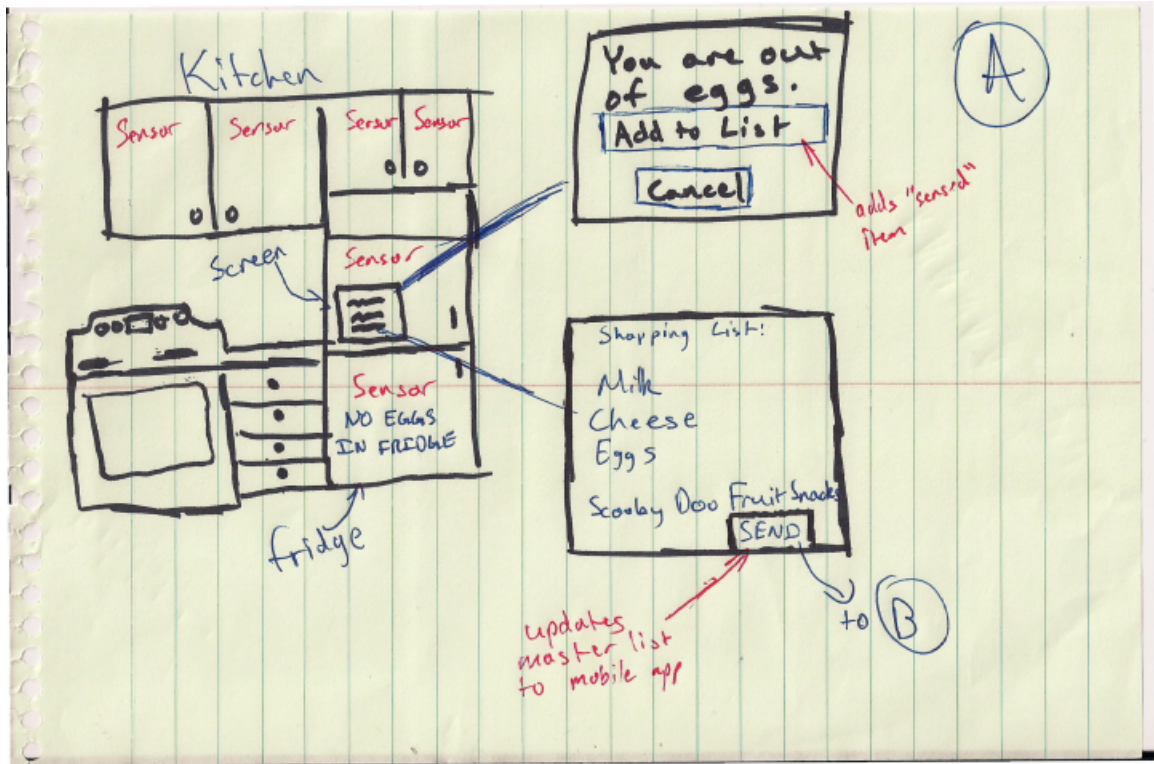 Kitchen
Sensor
Sensor
Sensor
Sensor
Screen
Sensor
Sensor
NO EGGS
IN FRIDGE
fridge
You are out
of eggs.
Add to List
Cancel
A
adds "sensed"
item
Shopping List:
Milk
Cheese
Eggs
Scooby Doo Fruit Snacks
SEND
updates
master list
to mobile app
to B